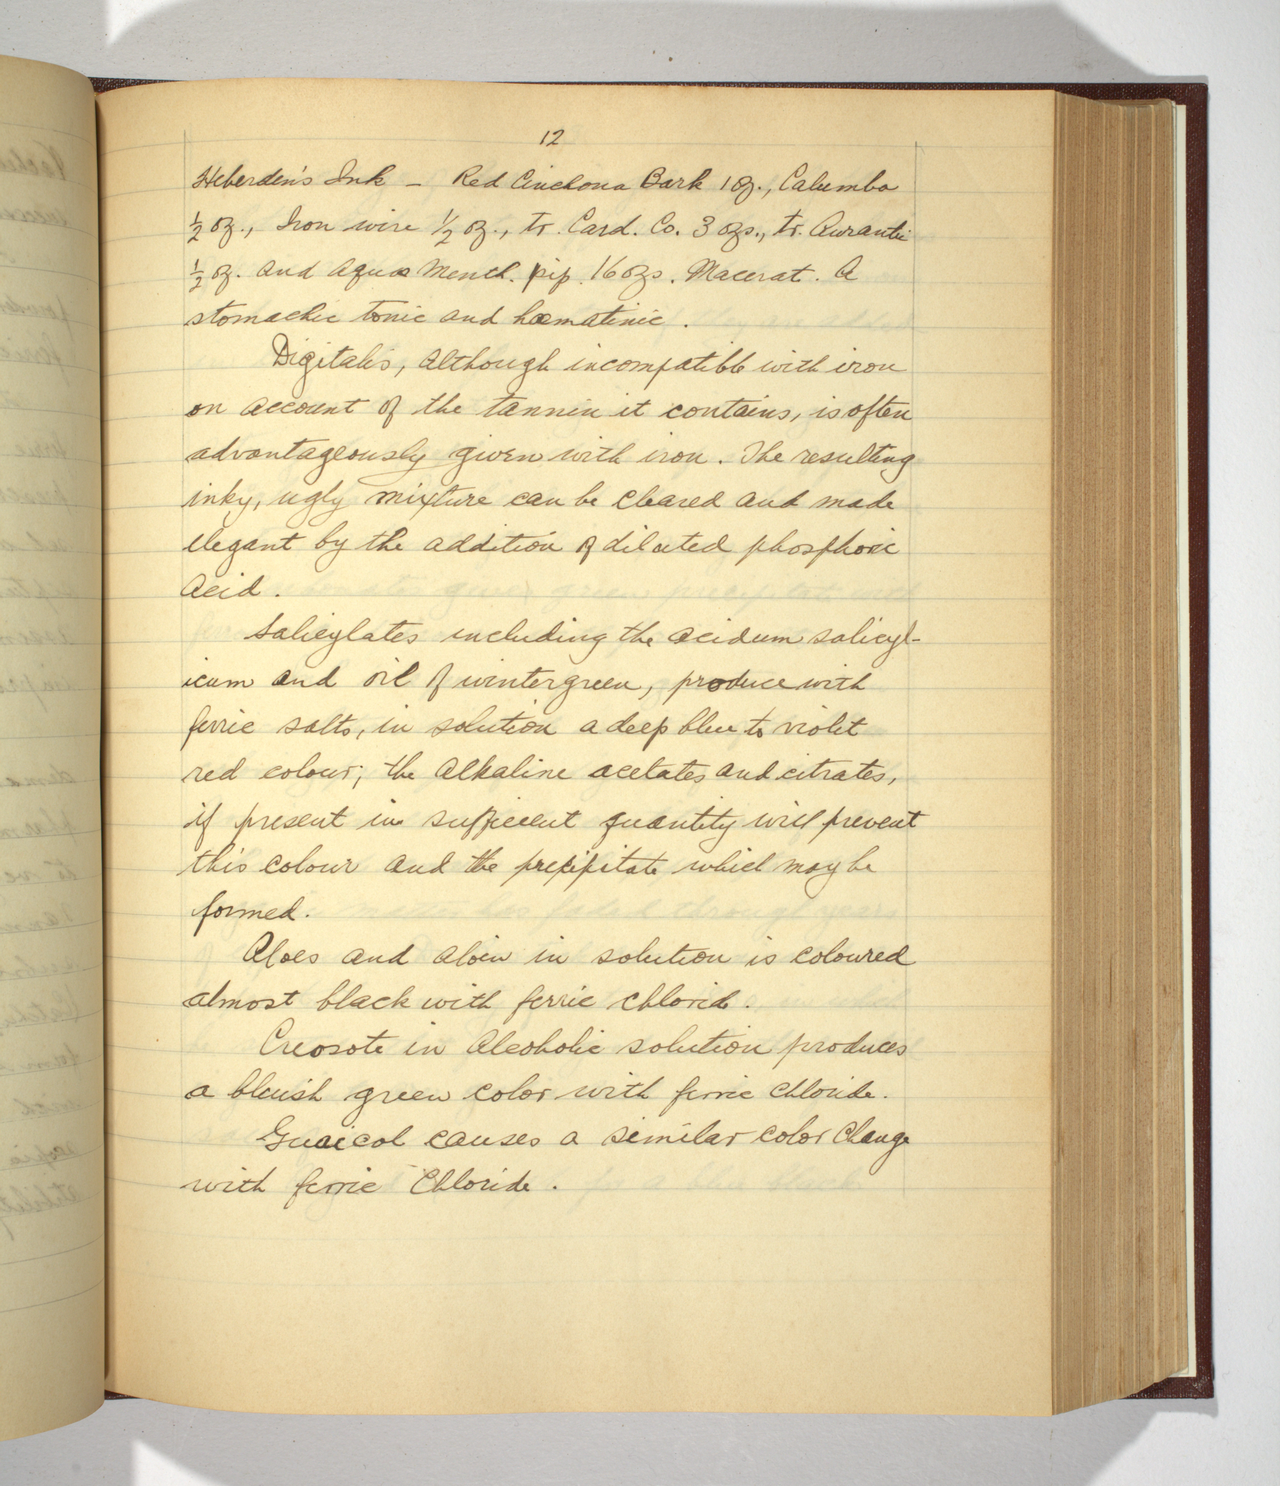 12
Heberden's Ink – Red Cinchona Bark 1 oz., Calumba
½ oz., Iron wire ½ oz., tr. Card. Co. 3 ozs., tr. Aurantii
½ oz. and Aquae Menth. pip. 16 ozs. Macerat. A
stomachic tonic and haematinic.
Digitalis, although incompatible with iron
on account of the tannin it contains, is often
advantageously given with iron. The resulting
inky, ugly mixture can be cleared and made
elegant by the addition of diluted phosphoric
acid.
Salicylates including the acidum salicyl-
icum and oil of wintergreen, produce with
ferric salts, in solution a deep blue to violet
red colour; the alkaline acetates and citrates,
if present in sufficient quantity will prevent
this colour and the precipitate which may be
formed.
Aloes and aloin in solution is coloured
almost black with ferric chlorid.
Creosote in Alcoholic solution produces
a bluish green color with ferric chloride.
Guaicol causes a similar color change
with ferric Chloride.